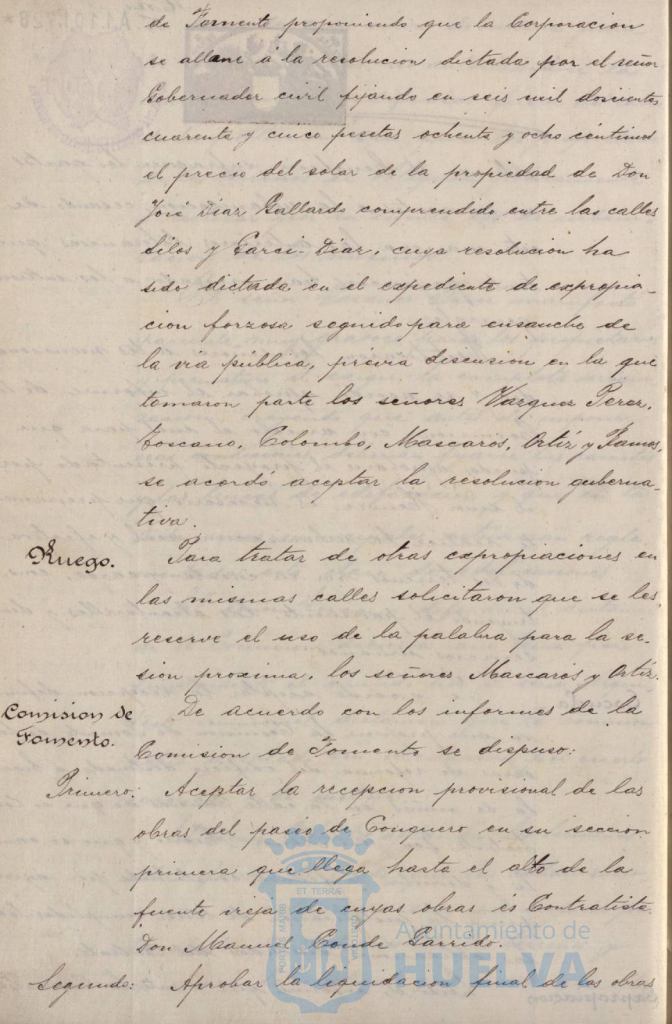 de Fomento proponiendo que la Corporacion
se allane á la resolucion dictada por el señor
Gobernador civil fijando en seis mil doscientas
cuarenta y cinco pesetas ochenta y ocho céntimos
el precio del solar de la propiedad de Don
José Diaz Gallardo comprendido entre las calles
Silos y Garci-Diaz, cuya resolucion ha
sido dictada en el expediente de expropia-
cion forzosa seguido para ensanche de
la via pública, prévia discusion en la que
tomaron parte los señores Vazquez Perez,
Toscano, Colombo, Mascarós, Ortíz y Ramos,
se acordó aceptar la resolucion guberna-
tiva.
Ruego. Para tratar de otras expropiaciones en
las mismas calles solicitaron que se les
reserve el uso de la palabra para la se-
sion proxima, los señores Mascarós y Ortíz.
Comision de Fomento. De acuerdo con los informes de la
Comision de Fomento se dispuso:
Primero: Aceptar la recepcion provisional de las
obras del paseo de Conquero en su seccion
primera que llega hasta el alto de la
fuente vieja de cuyas obras es Contratista
Don Manuel Conde Garrido.
Segundo: Aprobar la liquidacion final de las obras
PORTUS MARIS ET TERRÆ CUSTODIA
Ayuntamiento de
HUELVA